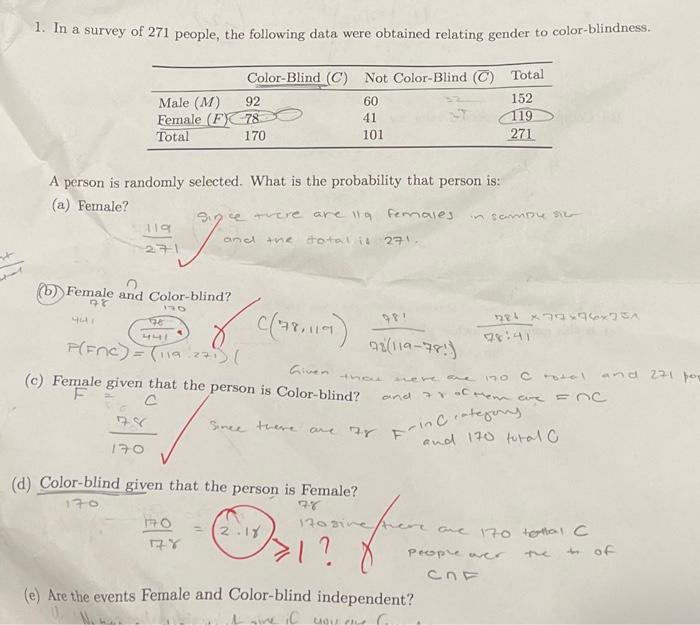 1. In a survey of 271 people, the following data were obtained relating gender to color-blindness.
Color-Blind (C) Not Color-Blind (C̅) Total
Male (M) 92 60 152
Female (F) 78 41 119
Total 170 101 271
A person is randomly selected. What is the probability that person is:
(a) Female?
Since there are 119 females in sample size
119/271 and the total is 271.
∩
(b) Female and Color-blind?
78 170
441 78/441 C(78,119) 78!/78!(119-78!)
P(F∩C) = (119·271)(
Given that there are 170 C total and 271
(c) Female given that the person is Color-blind? and 78 of them are F∩C
F C
78/170 Since there are 78 F in C category
and 170 total C
(d) Color-blind given that the person is Female?
170 78
170/178 = 2.18 170 since there are 170 total C
≥1? people over the # of
C∩F
(e) Are the events Female and Color-blind independent?